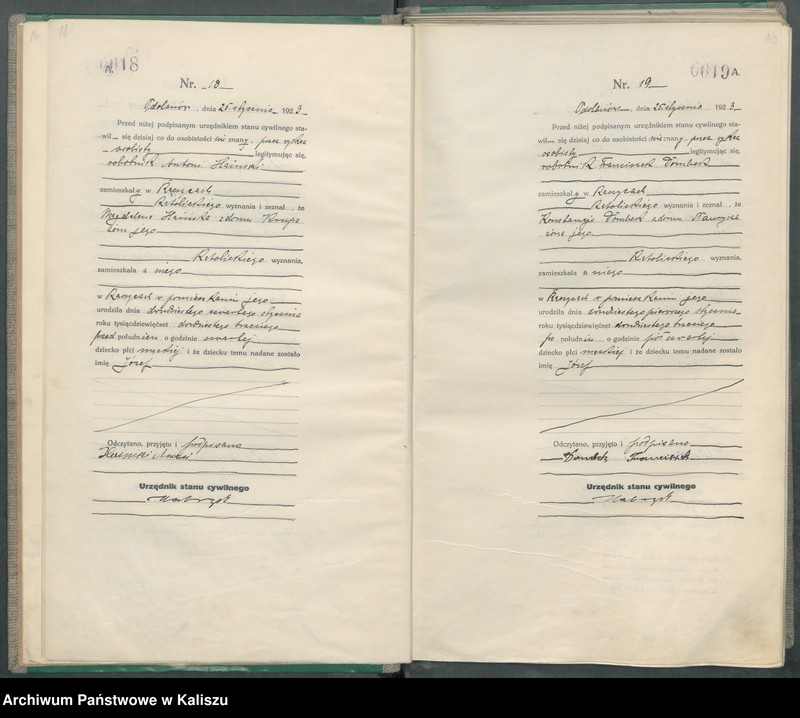 A 0018
Nr. 18
Odolanów, dnia 25 stycznia 1923
Przed niżej podpisanym urzędnikiem stanu cywilnego sta-
wił się dzisiaj co do osobistości nieznany, przez wykaz
osobisty legitymując się,
robotnik Antoni
zamieszkały w Raczycach
katolickiego wyznania i zeznał, że
Magdalena z domu
żona jego
katolickiego wyznania,
zamieszkała u niego
w Raczycach w pomieszkaniu jego
urodziła dnia dwudziestego czwartego stycznia
roku tysiącdziewięćset dwudziestego trzeciego
przed południem o godzinie czwartej
dziecko płci męskiej i że dziecku temu nadane zostało
imię Józef
Odczytano, przyjęto i podpisano
Urzędnik stanu cywilnego
0019 A
Nr. 19
Odolanów, dnia 25 stycznia 1923
Przed niżej podpisanym urzędnikiem stanu cywilnego sta-
wił się dzisiaj co do osobistości nieznany, przez wykaz
osobisty legitymując się,
robotnik Franciszek
zamieszkały w Raczycach
katolickiego wyznania i zeznał, że
Konstancja z domu
żona jego
katolickiego wyznania,
zamieszkała u niego
w Raczycach w pomieszkaniu jego
urodziła dnia dwudziestego pierwszego stycznia
roku tysiącdziewięćset dwudziestego trzeciego
po południu o godzinie pół czwartej
dziecko płci męskiej i że dziecku temu nadane zostało
imię Józef
Odczytano, przyjęto i podpisano
Franciszek
Urzędnik stanu cywilnego
Archiwum Państwowe w Kaliszu